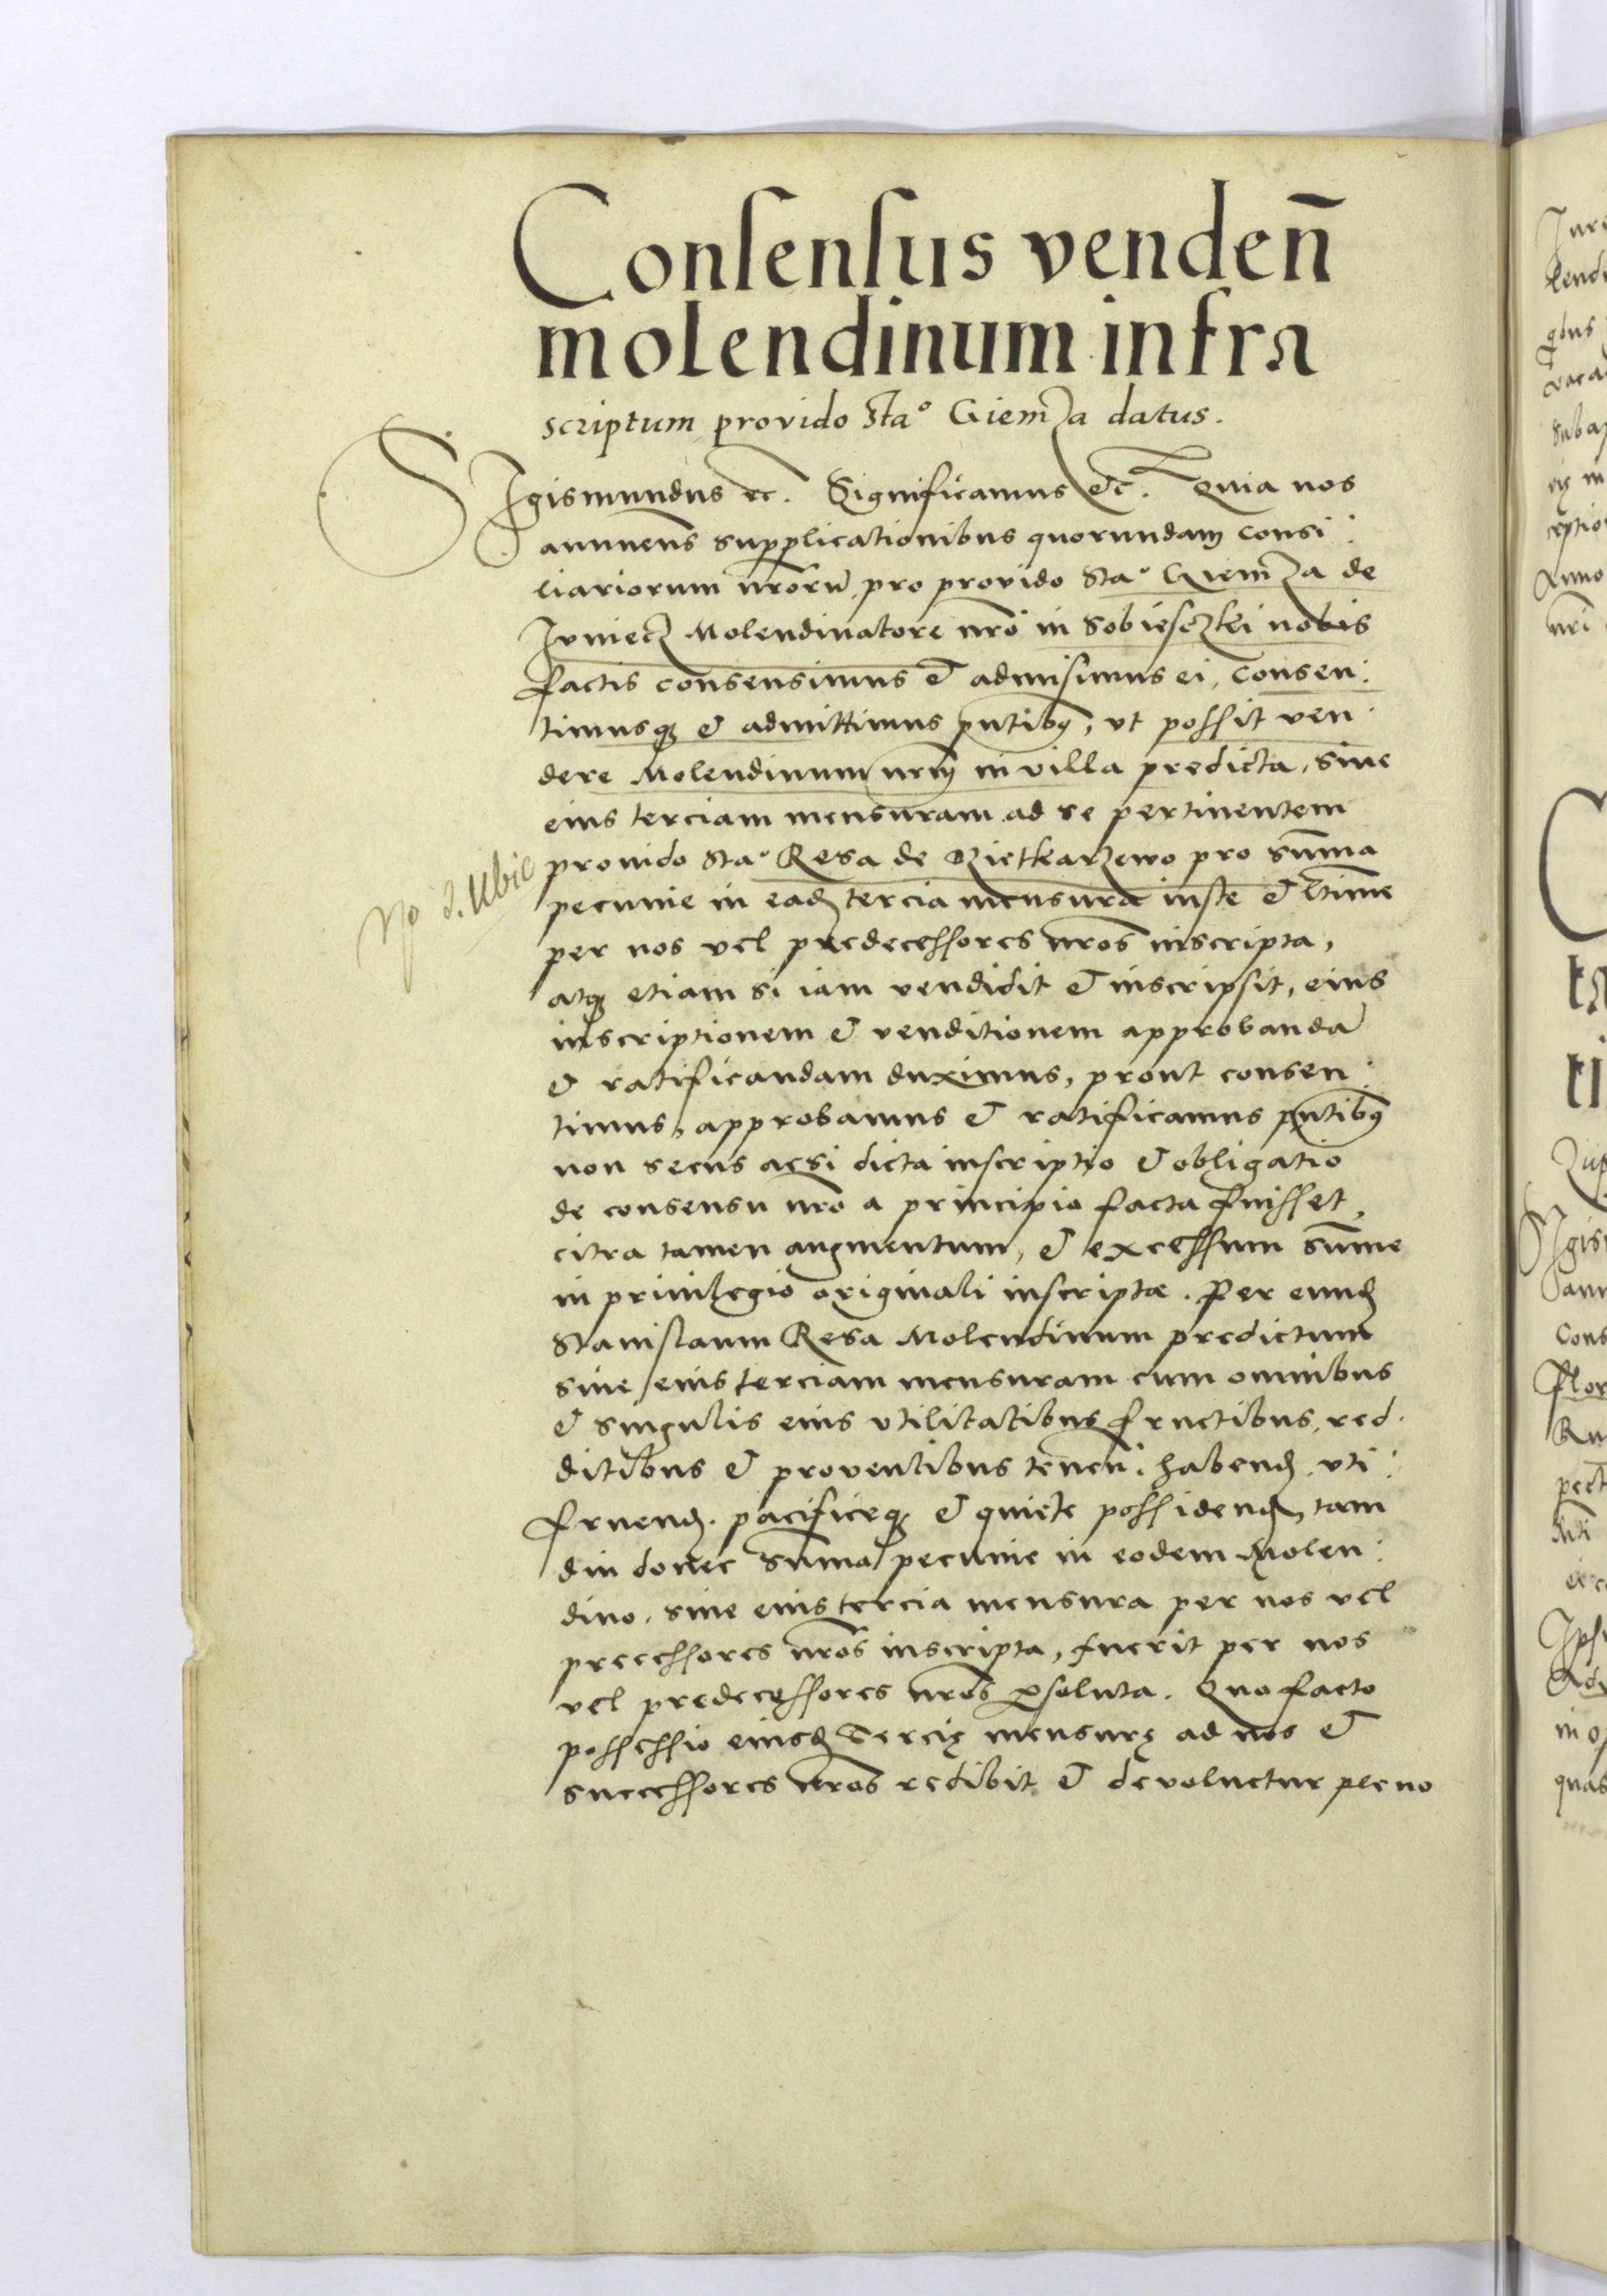 Consensus venden̄
molendinum infra
scriptum provido Sta° Giemza datus.
SIgismundus ec. Significamus etc. Quia nos
annuens supplicationibus quorundam consi:
liariorum nrōrū pro provido Sta° Giemza de
Molendinatore nrō in Sobiesczki nobis
factis consensimus et admisimus ei, consen:
timusq; et admittimus pntibq, vt possit ven:
dere Molendinum nrm̄ in villa predicta, sive
eius terciam mensuram ad se pertinentem
provido Sta° Resa de Dzietkarzewo pro sūma
No d. Ubic
pecunie in ead; tercia mensura iuste et ltīme
per nos vel predecessores nrōs inscripta,
atq; etiam si iam vendidit et inscripsit, eius
inscriptionem et venditionem approbandā
et ratificandam duximus, prout consen:
timus, approbamus et ratificamus pntibq
non secus acsi dicta inscriptio et obligatio
de consensu nrō a principio facta fuisset,
citra tamen augmentum, et excessum sūme
in privilegio originali inscriptae. Per eund;
Stanislaum Resa Molendinum predictum
sive eius terciam mensuram cum omnibus
et singulis eius vtilitatibus fructibus, red:
ditibus et proventibus tenen̄. habend; vti:
fruend;. pacificeq; et quiete possidend;, tam
diu donec sūma pecunie in eodem Molen:
dino, sive eius tercia mensura per nos vel
precessores nrōs inscripta, fuerit per nos
vel predecessores nrōs psoluta. Quo facto
possessio eiusd; Tercię mensurę ad nos et
successores nrōs redibit et devoluetur pleno